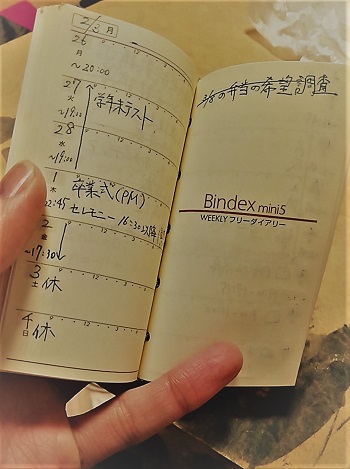 2/3月
26
月
~20:00
27
火
学年末テスト
~19:00
28
水
~19:00
1
木
卒業式(PM)
12:45 セレモニー 16:30以降
2
金
~17:30
3
土
休
4
日
休
3/8の弁当の希望調査
Bindex mini5
WEEKLY フリーダイアリー